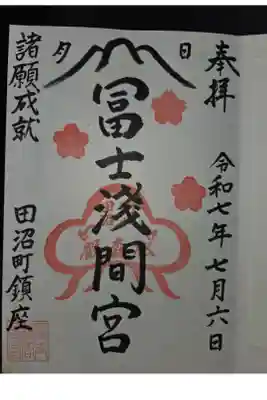 奉拝
令和七年七月六日
日
月
冨士淺間宮
諸願成就
田沼町鎮座